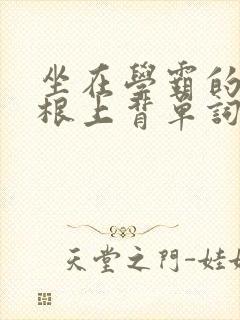 坐在學霸的
根上背單詞
天堂之門-娃